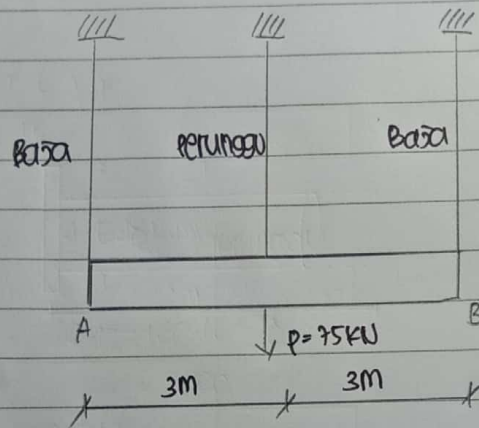 Baja Perunggu Baja
A B
P = 75 KN
3M 3M